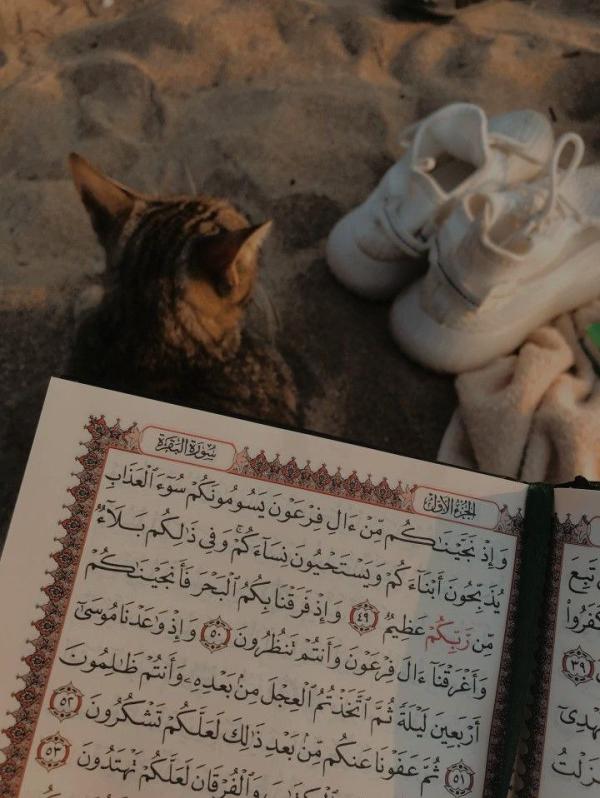 سُورَةُ البَقَرَةِ
الجُزْءُ الأَوَّلُ
وَإِذْ نَجَّيْنَٰكُم مِّنْ ءَالِ فِرْعَوْنَ يَسُومُونَكُمْ سُوٓءَ ٱلْعَذَابِ
يُذَبِّحُونَ أَبْنَآءَكُمْ وَيَسْتَحْيُونَ نِسَآءَكُمْ ۚ وَفِى ذَٰلِكُم بَلَآءٌ
مِّن رَّبِّكُمْ عَظِيمٌ ٤٩ وَإِذْ فَرَقْنَا بِكُمُ ٱلْبَحْرَ فَأَنجَيْنَٰكُمْ
وَأَغْرَقْنَآ ءَالَ فِرْعَوْنَ وَأَنتُمْ تَنظُرُونَ ٥٠ وَإِذْ وَٰعَدْنَا مُوسَىٰٓ
أَرْبَعِينَ لَيْلَةً ثُمَّ ٱتَّخَذْتُمُ ٱلْعِجْلَ مِنۢ بَعْدِهِۦ وَأَنتُمْ ظَٰلِمُونَ
٥١ ثُمَّ عَفَوْنَا عَنكُم مِّنۢ بَعْدِ ذَٰلِكَ لَعَلَّكُمْ تَشْكُرُونَ ٥٢
وَٱلْفُرْقَانَ لَعَلَّكُمْ تَهْتَدُونَ ٥٣
تَبِعَ
كَفَرُوا۟
٣٩